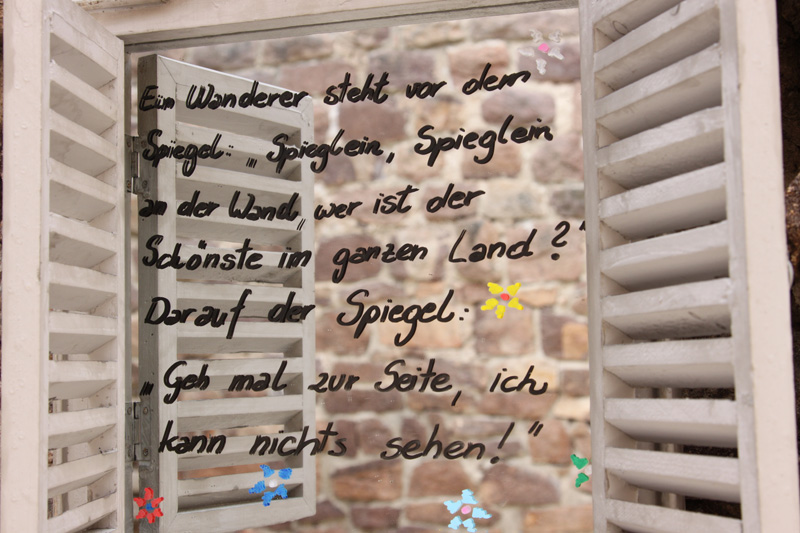 Ein Wanderer steht vor dem
Spiegel: „Spieglein, Spieglein
an der Wand„ wer ist der
Schönste im ganzen Land?“
Darauf der Spiegel:
„Geh mal zur Seite, ich
kann nichts sehen!“